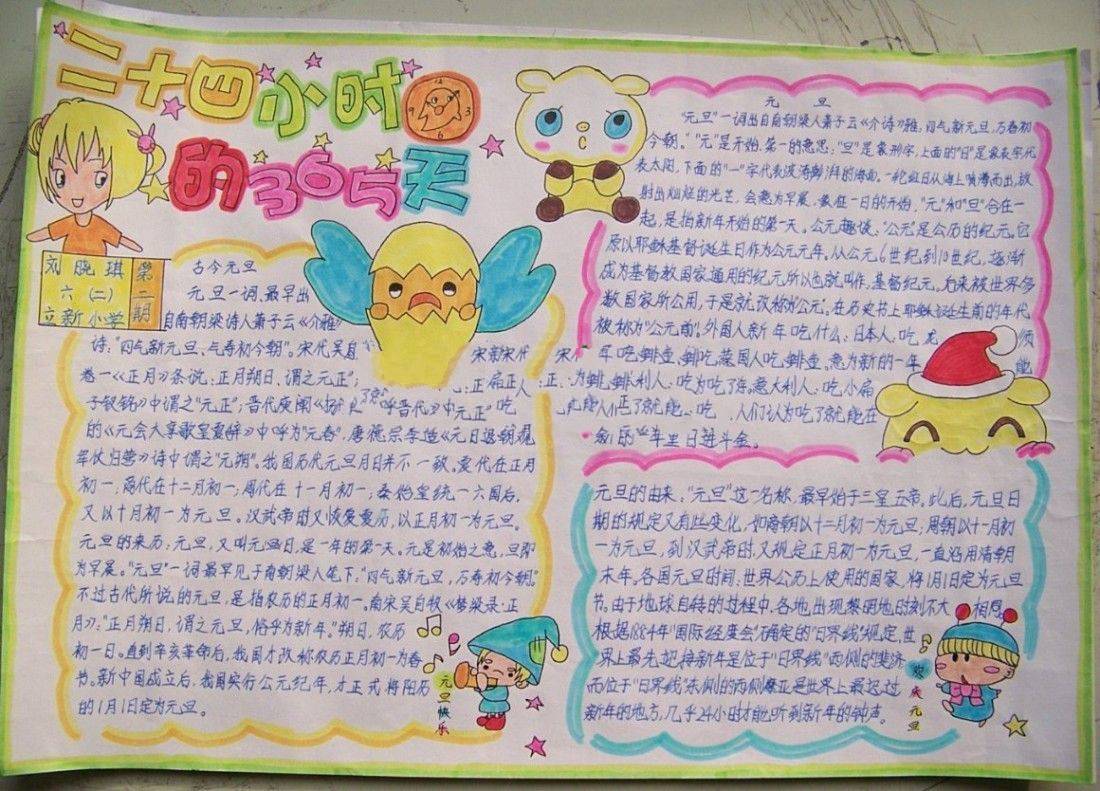 二十四小时
的365天
刘晓琪
六(二)
立新小学
第二期
古今元旦
元旦一词、最早出
自南朝梁诗人萧子云《介雅》
诗:"四气新元旦、万寿初今朝"。宋代吴自
卷一《正月》条说:正月朔日、谓之元正";
子钗铭》中谓之"元正";晋代庾阐《扬
呼晋代》中元正"吃
的《元会大享歌皇夏辞》中呼为"元春",唐德宗李适《元日退朝观
军仗归营》诗中谓之"元朔"。我国历代元旦月日并不一致、夏代在正月
初一,商代在十二月初一;周代在十一月初一;秦始皇统一六国后,
又以十月初一为元旦。汉武帝时又恢复夏历,以正月初一为元旦。
元旦的来历:元旦,又叫元旦日,是一年的第一天。元是初始之意,旦即
为早晨。"元旦"一词最早见于南朝梁人笔下:"四气新元旦,万寿初今朝。"
不过古代所说的元旦,是指农历的正月初一。南宋吴自牧《梦梁录·正
月》:"正月朔日,谓之元旦,俗乎为新年。"朔日,农历
初一日。直到辛亥革命后,我国才改称农历正月初一为春
节。新中国成立后,我国实行公元纪年,才正式将阳历
的1月1日定为元旦。
元旦快乐
元旦
"元旦"一词出自南朝梁人萧子云《介诗》雅,四气新元旦,万寿初
今朝。""元"是开始、第一的意思;"旦"是象形字,上面的"日"是象表字代
表太阳,下面的"一"字代表波涛澎湃的海面。一轮红日从海上喷薄而出,放
射出灿烂的光芒,会意为早晨,象征一日的开始,"元"和"旦"合在一
起,是指新年开始的第一天。公元趣谈:"公元是公历的纪元,它
原以耶稣基督诞生日作为公元元年,从公元6世纪到10世纪,逐渐
成为基督教国家通用的纪元所以也就叫作,基督纪元,后来被世界多
数国家所公用,于是就改称为公元,在历史书上耶稣诞生前的年代
被称为"公元前"。外国人新年吃什么:日本人:吃龙
年吃蝉壶、蝉吃,英国人吃蝉壶。意为新的一年
为蝉、蝉利人:吃为吃了年。意大利人:吃小扁
人们认为吃了就能在
年里日进斗金。
元旦的由来:"元旦"这一名称,最早始于三皇五帝。此后,元旦日
期的规定又有些变化,如商朝以十二月初一为元旦,周朝以十一月初
一为元旦,到汉武帝时又规定正月初一为元旦,一直沿用清朝
末年。各国元旦时间:世界公历上使用的国家,将1月1日定为元旦
节。由于地球自转的过程中、各地出现黎明地时刻不大相同
根据1884年"国际经度会"确定的"日界线"规定,世
界上最先迎接新年是位于"日界线"西侧的斐济
而位于"日界线"东侧的西侧摩亚是世界上最迟过
新年的地方,几乎24小时才能听到新年的钟声。
欢庆元旦